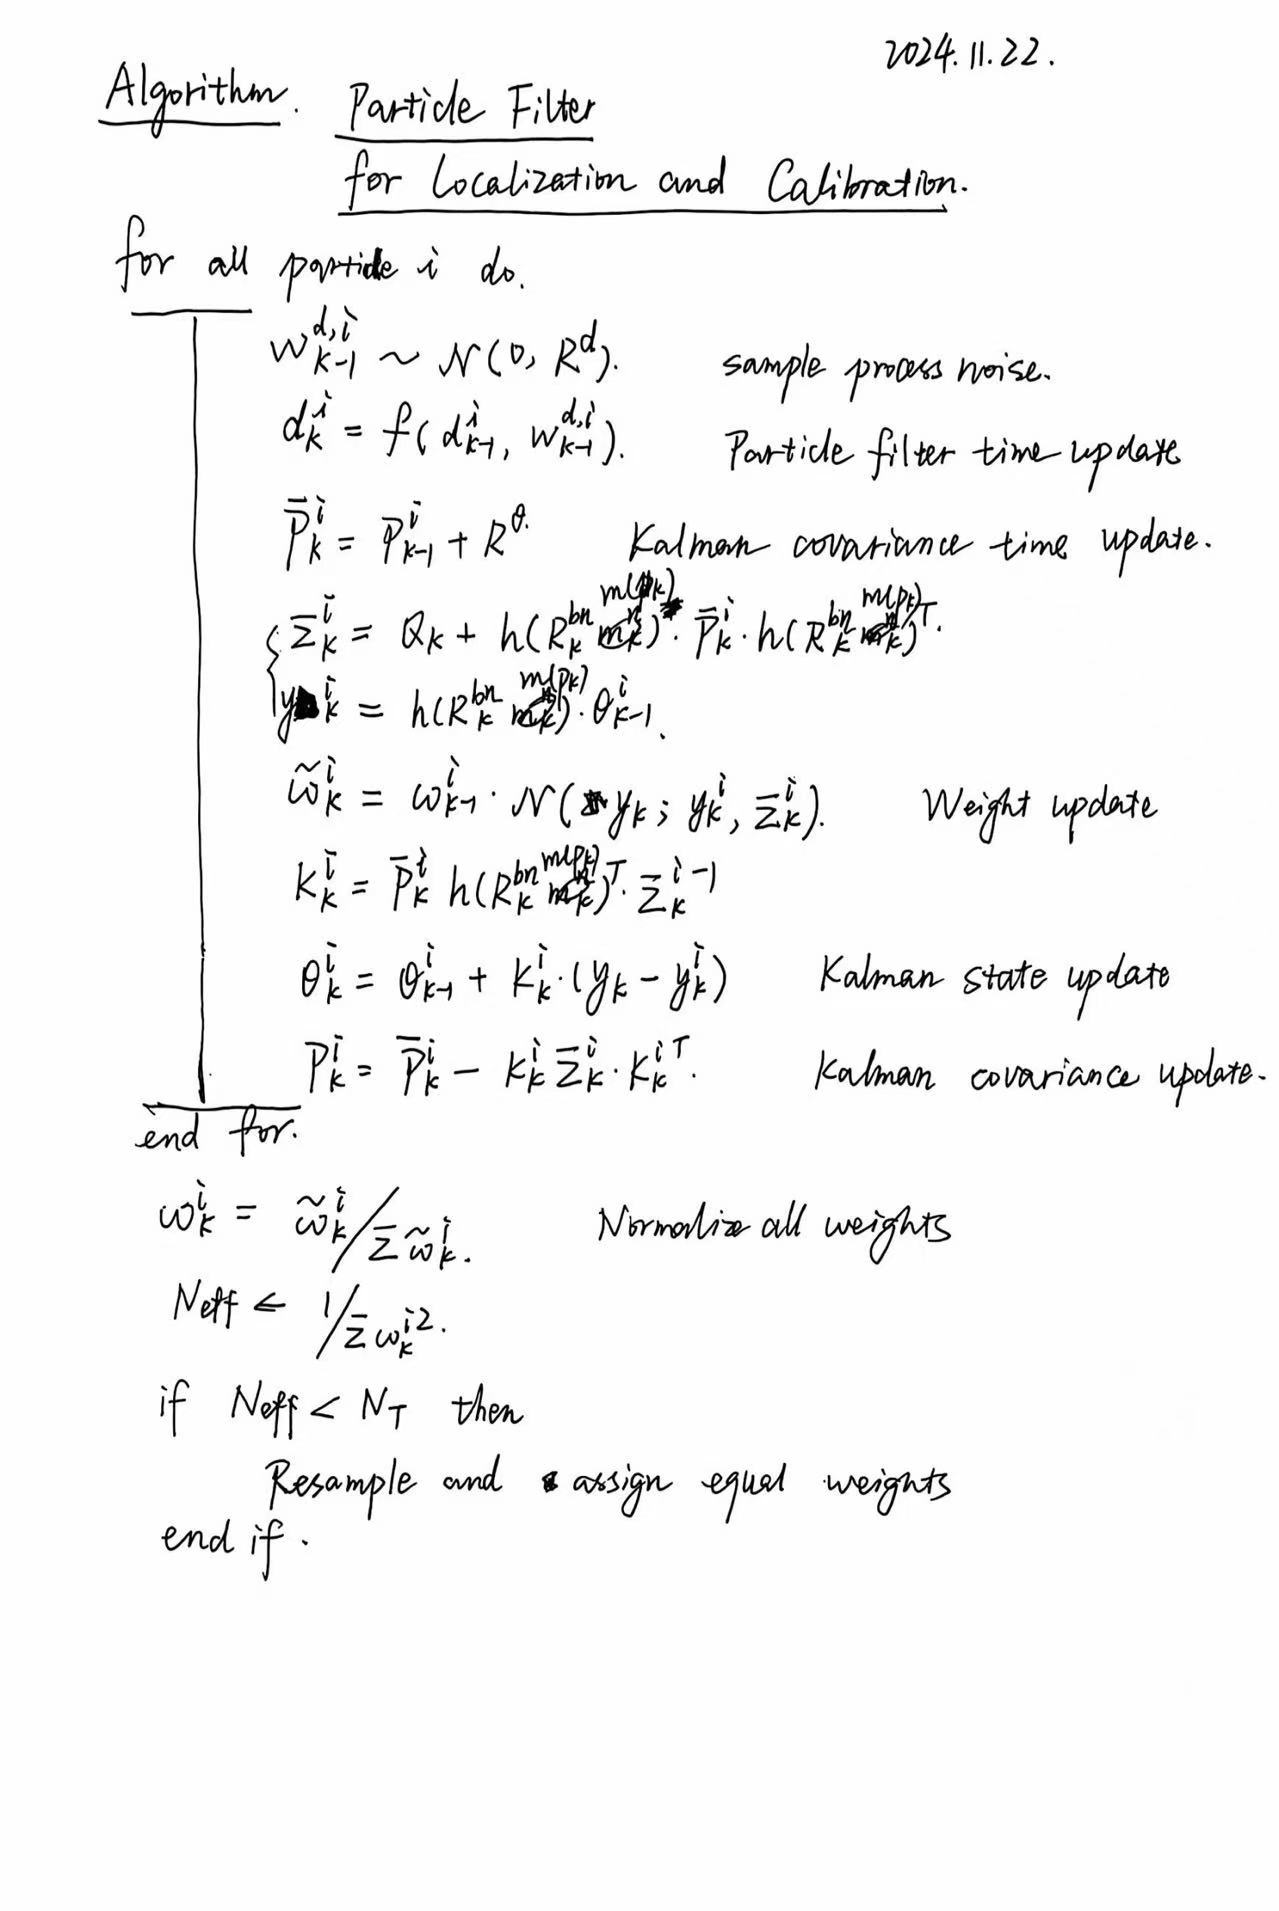 2024.11.22.
Algorithm. Particle Filter
for Localization and Calibration.
for all particle i do.
w_{k-1}^{d,i} ~ N(0, R^d). sample process noise.
d_k^i = f(d_{k-1}^i, w_{k-1}^{d,i}). Particle filter time update
P̄_k^i = P_{k-1}^i + R^θ. Kalman covariance time update.
Σ_k^i = Q_k + h(R_k^{bn} m(p_k))· P̄_k^i · h(R_k^{bn} m(p_k))^T.
y_k^i = h(R_k^{bn} m(p_k))· θ_{k-1}^i.
ω̃_k^i = ω_{k-1}^i · N(y_k; y_k^i, Σ_k^i). Weight update
K_k^i = P̄_k^i h(R_k^{bn} m(p_k))^T · Σ_k^{i -1}
θ_k^i = θ_{k-1}^i + K_k^i·(y_k - y_k^i) Kalman state update
P_k^i = P̄_k^i - K_k^i Σ_k^i · K_k^{iT}. Kalman covariance update.
end for.
ω_k^i = ω̃_k^i / Σ ω̃_k^i. Normalize all weights
Neff ← 1/Σ ω_k^{i2}.
if Neff < N_T then
Resample and assign equal weights
end if.